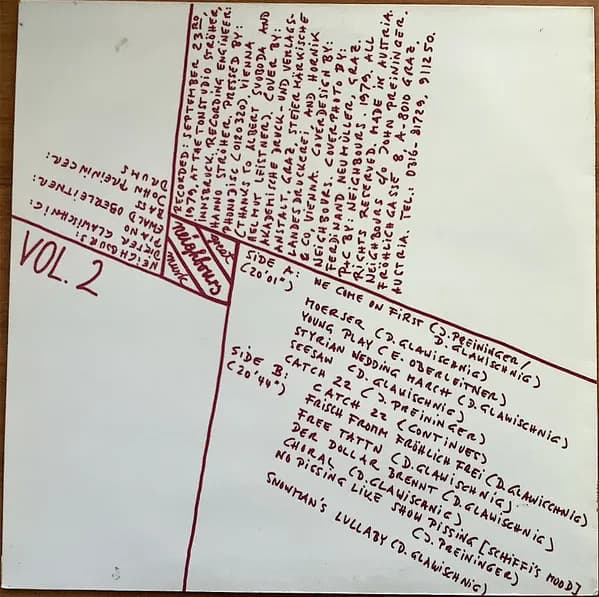 RECORDED: SEPTEMBER 23RD
1979, AT THE TONSTUDIO STRÖHER,
INNSBRUCK. RECORDING ENGINEER:
HANNO STRÖHER. PRESSED BY:
PHONODISC (0120320), VIENNA
(THANKS TO ALBERT SVOBODA AND
HELMUT LEISTNER). COVER BY:
AKADEMISCHE DRUCK- UND VERLAGS-
ANSTALT, GRAZ, STEIERMÄRKISCHE
LANDESDRUCKEREI AND HORNIK
& CO VIENNA. COVERDESIGN BY:
NEIGHBOURS. COVERPHOTO BY:
FERDINAND NEUMÜLLER, GRAZ.
P+C BY NEIGHBOURS. 1979. ALL
RIGHTS RESERVED. MADE IN AUSTRIA.
NEIGHBOURS C/O JOHN PREININGER.
FRÖHLICHGASSE 8, A-8010 GRAZ.
AUSTRIA. TEL.: 0316-81729, 911250.
NEIGHBOURS:
DIETER GLAWISCHNIG:
PIANO
EWALD OBERLEITNER:
BASS
JOHN PREININGER:
DRUMS
great
neighbours
music
VOL. 2
SIDE A: WE COME ON FIRST (J. PREININGER/
(20'01") D. GLAWISCHNIG)
MOERSER (D. GLAWISCHNIG)
YOUNG PLAY (E. OBERLEITNER)
STYRIAN WEDDING MARCH (D. GLAWISCHNIG)
SEESAW (D. GLAWISCHNIG)
CATCH 22 (J. PREININGER)
SIDE B: CATCH 22 (CONTINUES)
(20'44") FRISCH FROMM FRÖHLICH FREI (D. GLAWISCHNIG)
FREE TATTN (D. GLAWISCHNIG)
DER DOLLAR BRENNT (D. GLAWISCHNIG)
CHORAL (D. GLAWISCHNIG)
NO PISSING LIKE SHOW PISSING [SCHIFFI'S MOOD]
(J. PREININGER)
SNOWMAN'S LULLABY (D. GLAWISCHNIG)